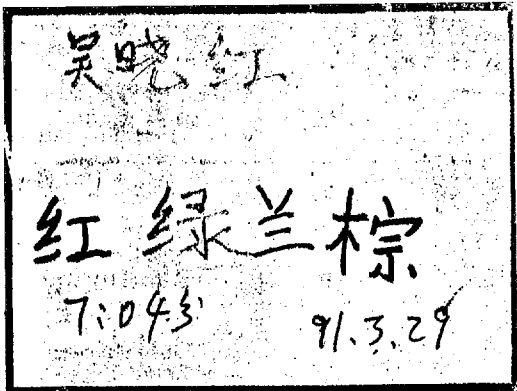 吴晓红
红绿兰棕
7:04分 91.3.29